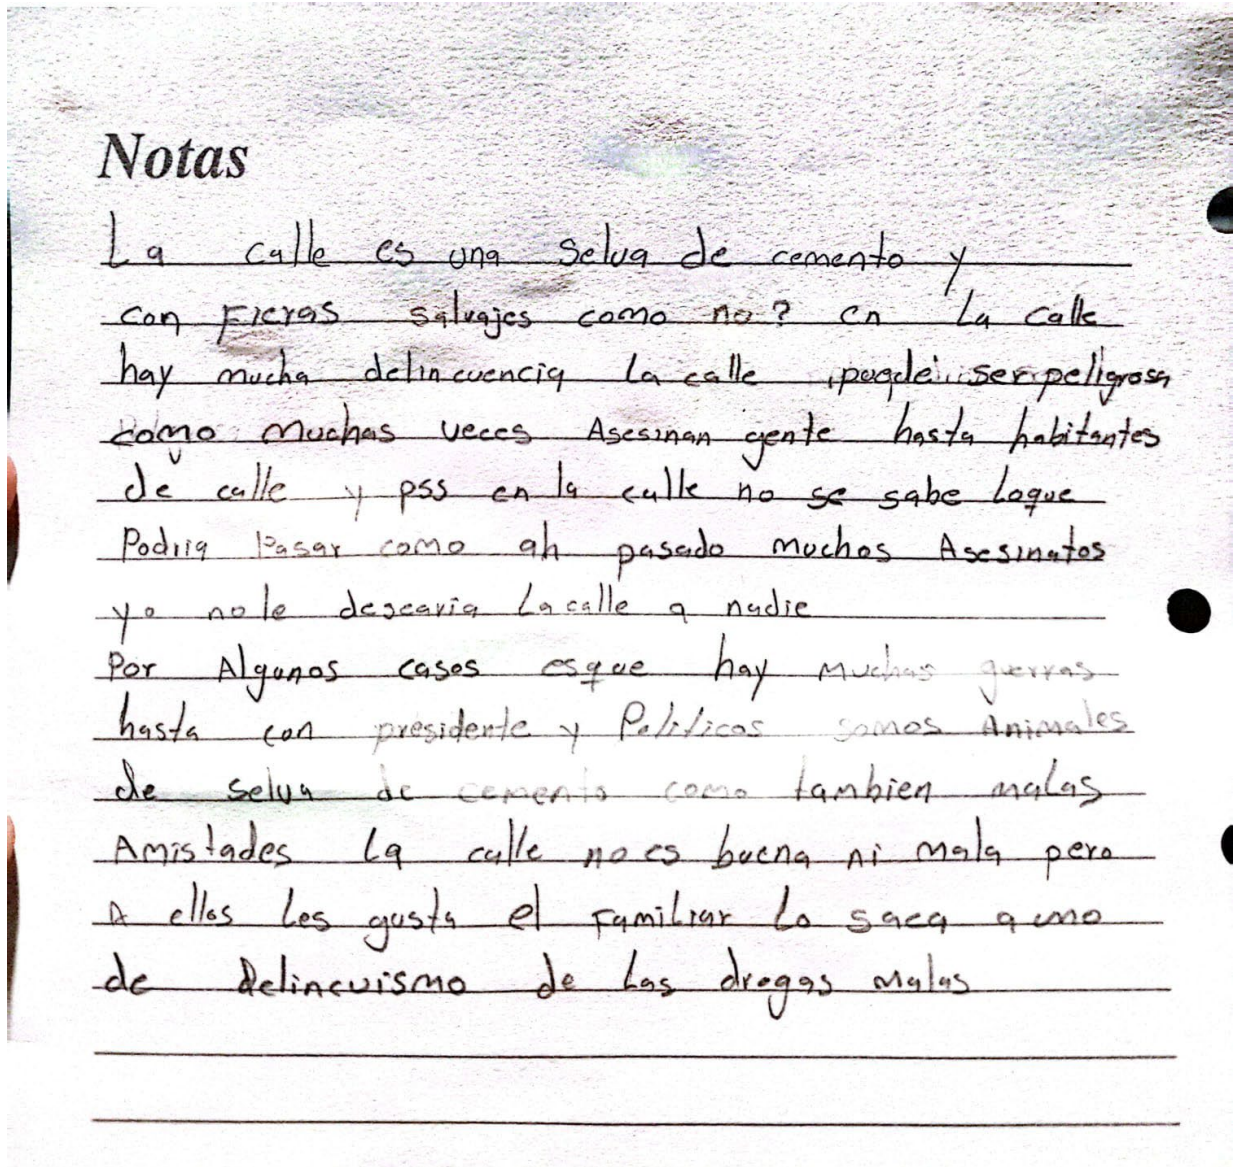 Notas
La calle es una selva de cemento y
con Fieras salvajes como no? en La calle
hay mucha delincuencia La calle puede ser peligrosa
como muchas veces Asesinan gente hasta habitantes
de calle y pss en la calle no se sabe Loque
Podria Pasar como ah pasado muchos Asesinatos
yo nole desearia La calle a nadie
Por Algunos casos esque hay muchas guerras
hasta con presidente y Politicos somos Animales
de selva de cemento como tambien malas
Amistades La calle no es buena ni mala pero
A ellos Les gusta el Familiar Lo saca a uno
de Delincuismo de Las drogas malas